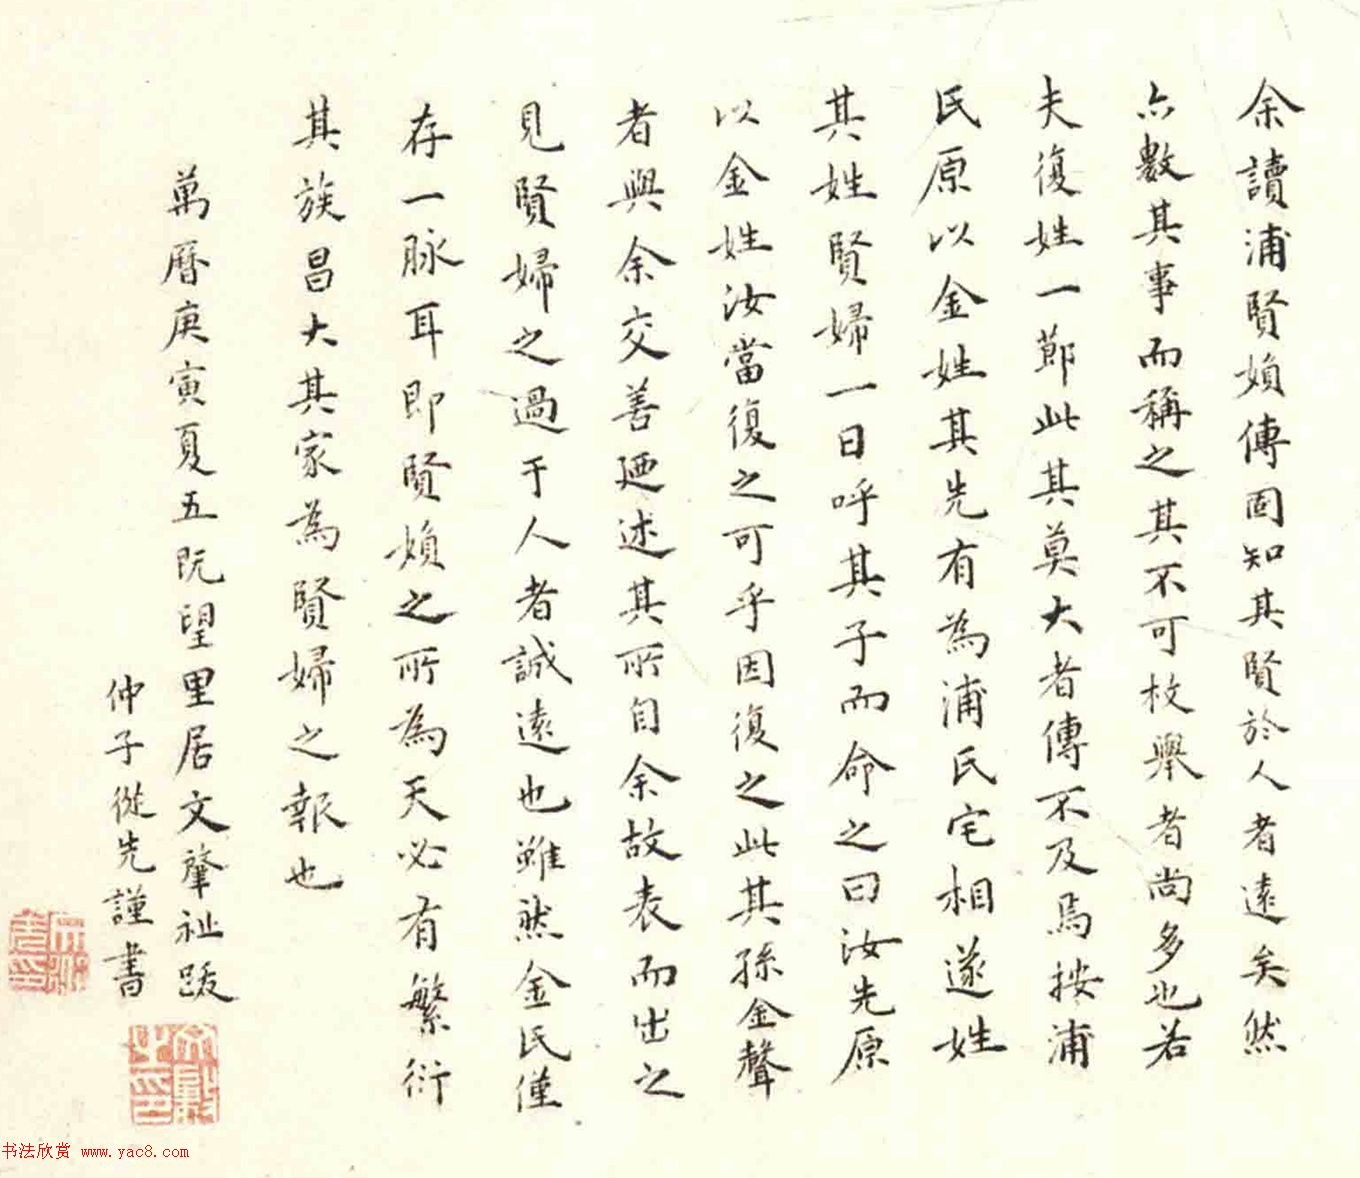 余讀浦賢媍傳固知其賢於人者遠矣然
亦數其事而稱之其不可枚舉者尚多也若
夫復姓一節此其莫大者傳不及焉按浦
氏原以金姓其先有為浦氏宅相遂姓
其姓賢婦一日呼其子而命之曰汝先原
以金姓汝當復之可乎因復之此其孫金聲
者與余交善迺述其所自余故表而出之
見賢婦之過于人者誠遠也雖然金氏僅
存一脉耳即賢媍之所為天必有繁衍
其族昌大其家為賢婦之報也
萬曆庚寅夏五既望里居文肇祉跋
仲子從先謹書
书法欣赏 www.yac8.com